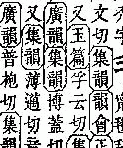 文切集韻韻會正
又玉篇字云切
廣韻集韻博蓋切
又集韻薄適切音
廣韻普枹切集